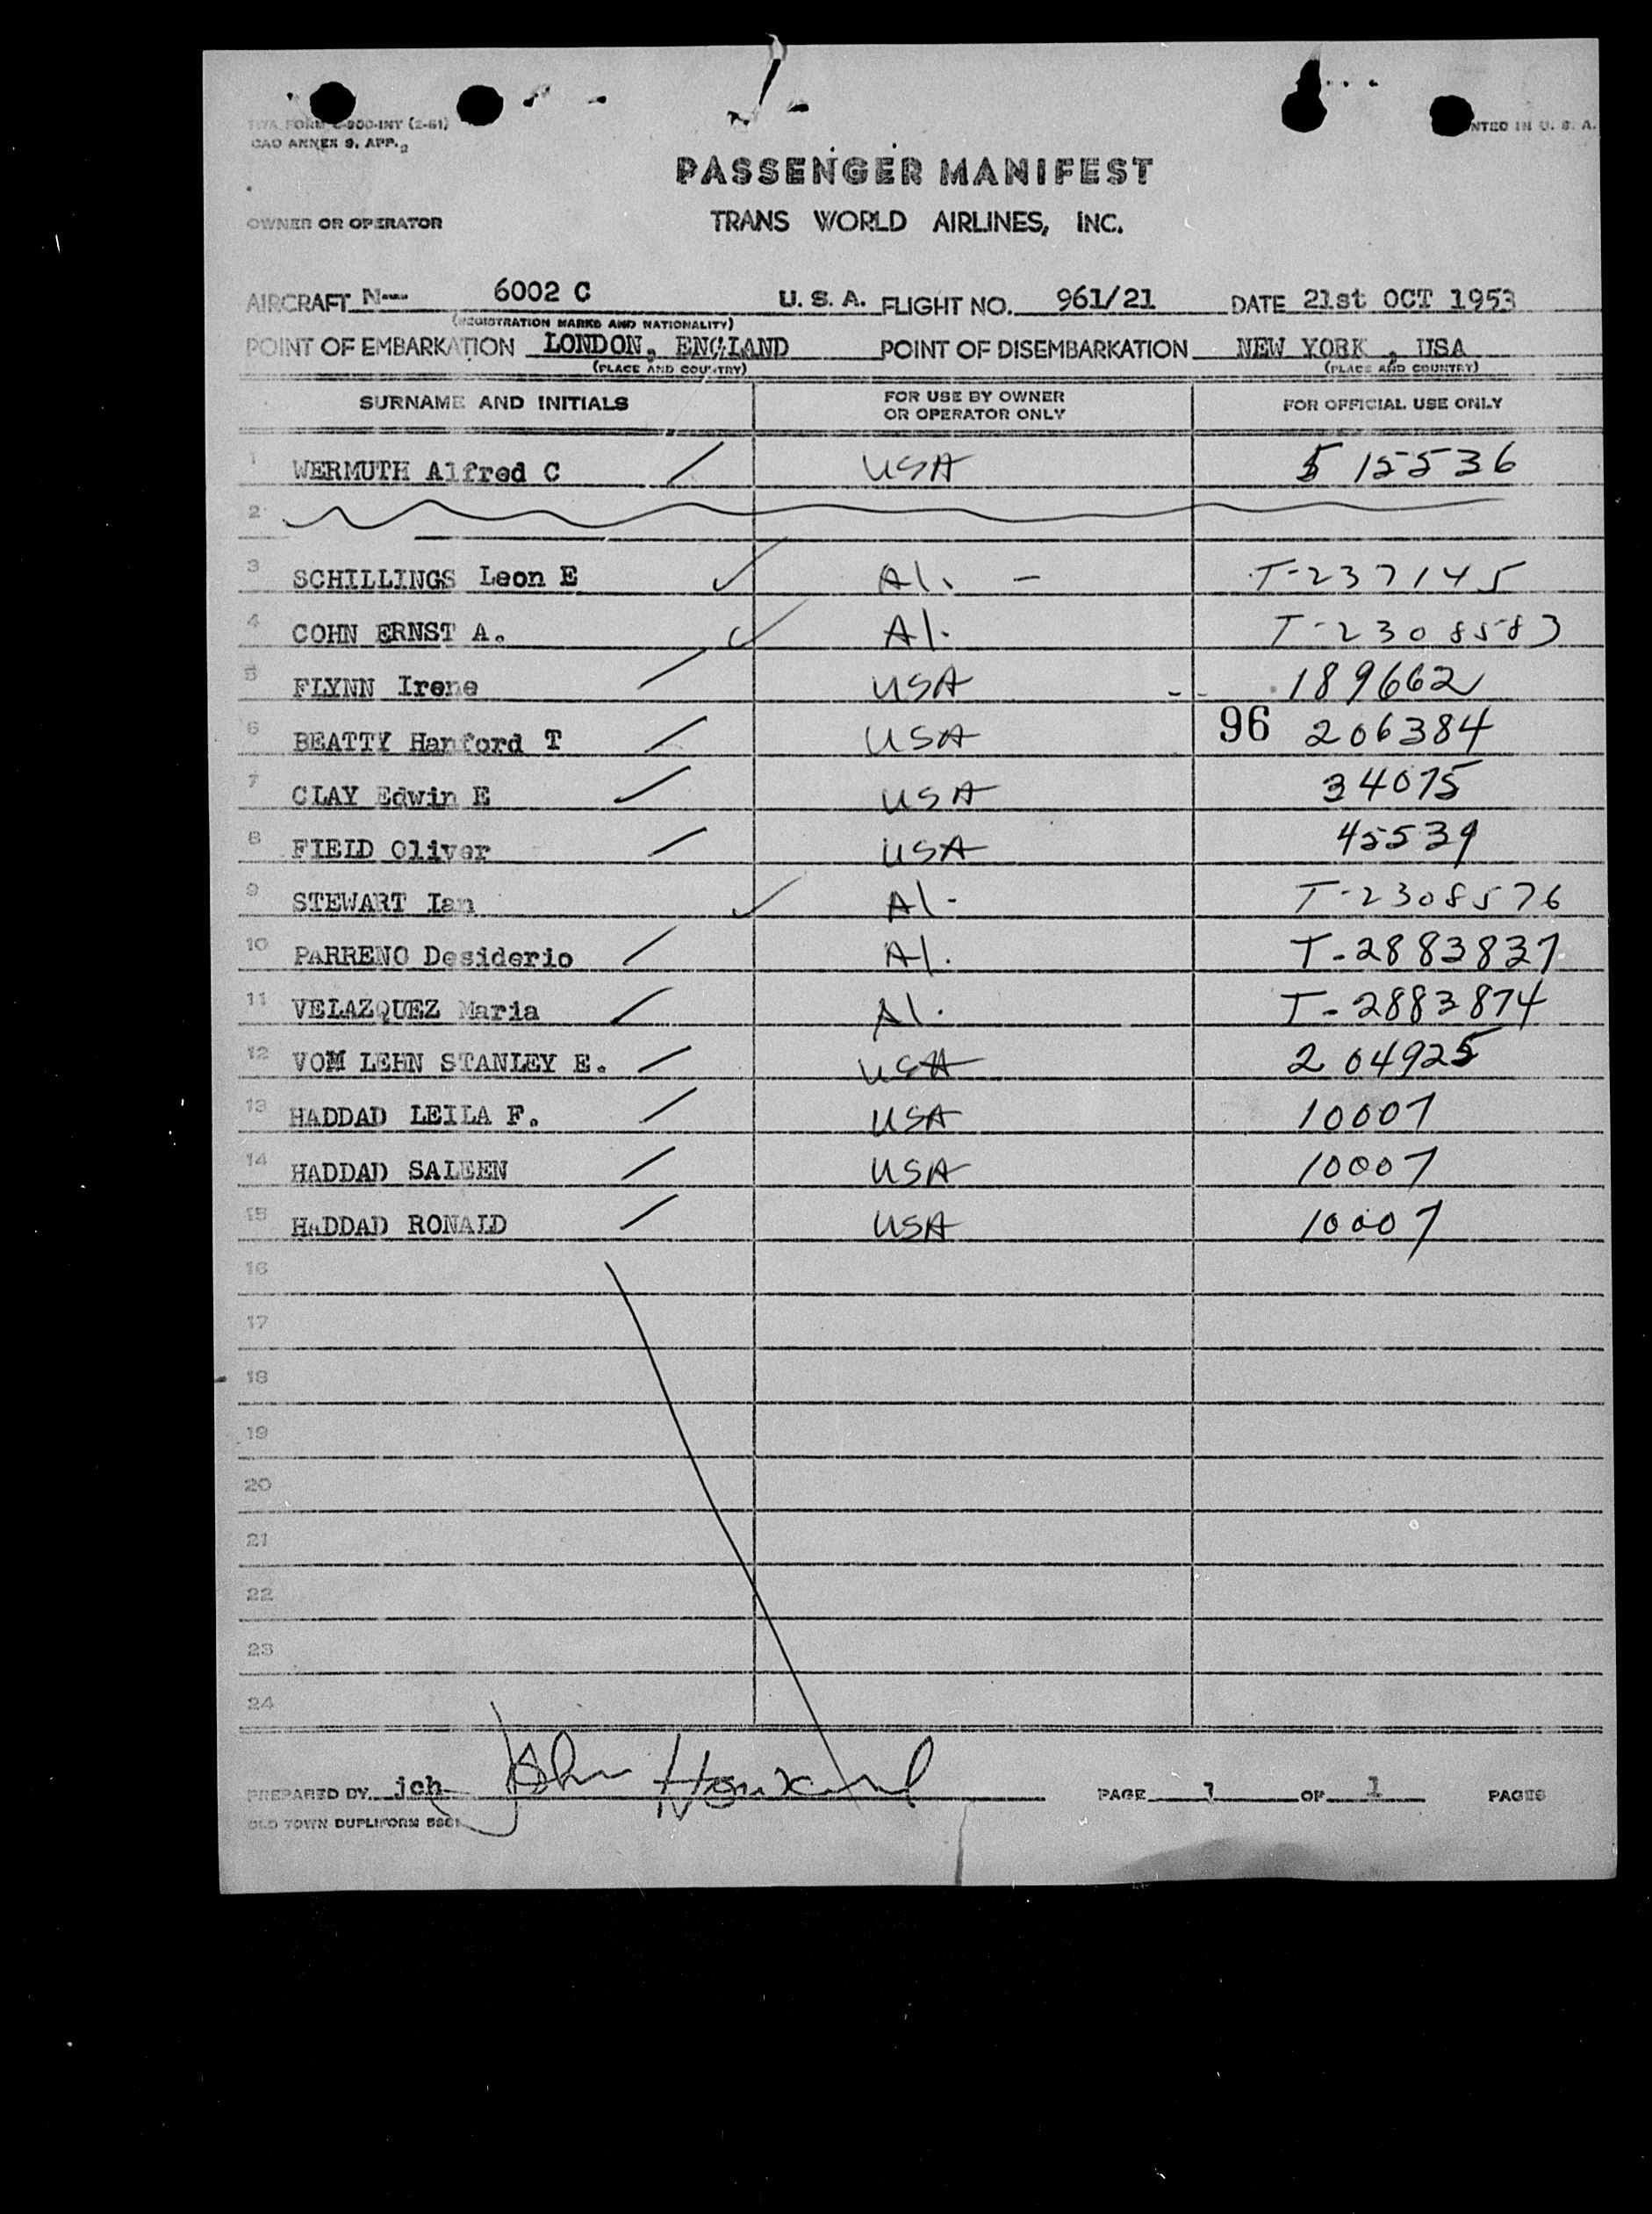 TWA FORM C-900-INT (2-51)
CAO ANNEX 9. APP. 2
NTED IN U. S. A.
PASSENGER MANIFEST
OWNER OR OPERATOR TRANS WORLD AIRLINES, INC.
AIRCRAFT N--- 6002 C U. S. A. FLIGHT NO. 961/21 DATE 21st OCT 1953
(REGISTRATION MARKS AND NATIONALITY)
POINT OF EMBARKATION LONDON, ENGLAND POINT OF DISEMBARKATION NEW YORK , USA
(PLACE AND COUNTRY) (PLACE AND COUNTRY)
SURNAME AND INITIALS FOR USE BY OWNER OR OPERATOR ONLY FOR OFFICIAL USE ONLY
1 WERMUTH Alfred C USA 515536
2
3 SCHILLINGS Leon E Al. - T-237145
4 COHN ERNST A. Al. T-2308583
5 FLYNN Irene USA 189662
6 BEATTY Hanford T USA 96 206384
7 CLAY Edwin E USA 34075
8 FIELD Oliver USA 45539
9 STEWART Ian Al- T-2308576
10 PARRENO Desiderio Al. T-2883837
11 VELAZQUEZ Maria Al. T-2883874
12 VOM LEHN STANLEY E. USA 204925
13 HADDAD LEILA F. USA 10007
14 HADDAD SALEEN USA 10007
15 HADDAD RONALD USA 10007
16
17
18
19
20
21
22
23
24
PREPARED BY jch John Howard PAGE 1 OF 1 PAGES
OLD TOWN DUPLIFORM